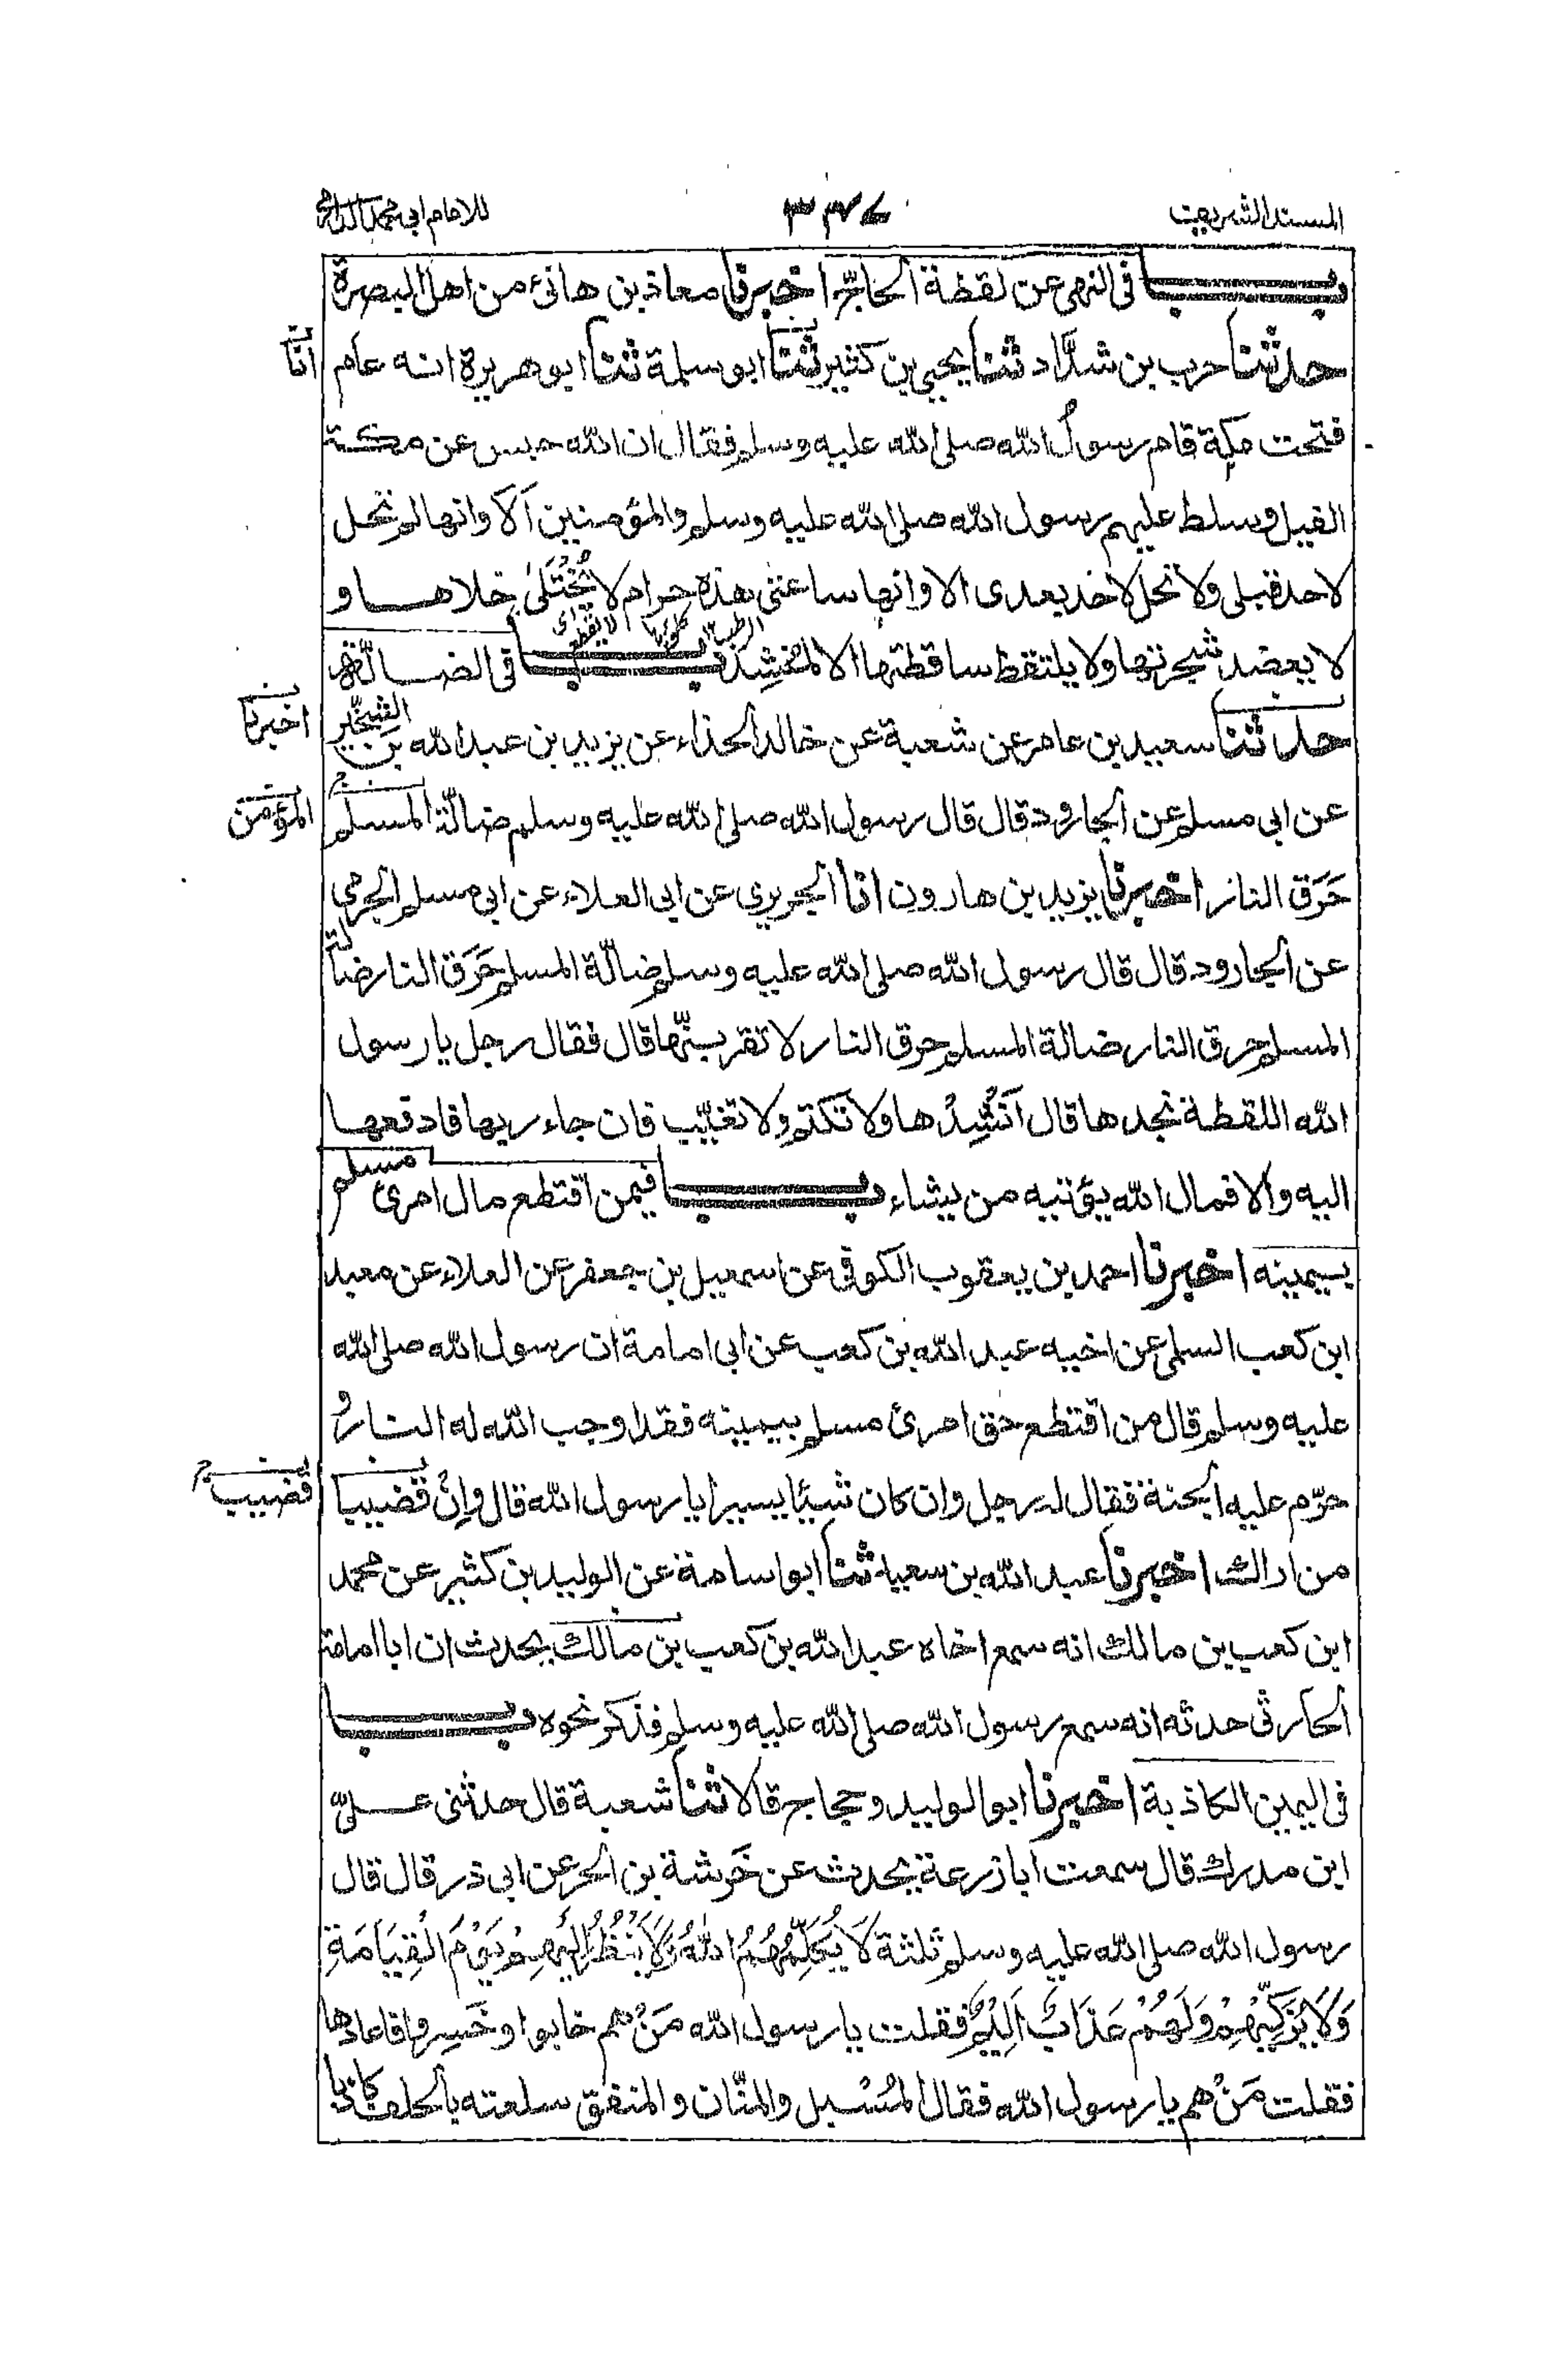 المسند الشريف
٣٣٧
للامام ابی محمد الدارمی
باب فى النهى عن لقطة الحاج اخبرنا معاذ بن هانئ من اهل البصرة
حدثنا حرب بن شدّاد ثنا يحيى بن كثير ثنا ابو سلمة ثنا ابو هريرة انه عام
انّا
فتحت مكة قام رسولُ الله صلى الله عليه وسلم فقال ان الله حبس عن مكة
الفيل وسلط عليهم رسول الله صلى الله عليه وسلم والمؤمنين اَلَا وانها لم تحل
لاحد قبلى ولا تحل لاحد بعدى الا وانها ساعتى هذه حرام لا يُخْتَلىٰ خلاها و
لا يعضد شجرتها ولا يلتقط ساقطتها الا لمنشِد باب فى الضالّة
حدثنا سعيد بن عامر عن شعبة عن خالد الحذاء عن يزيد بن عبد الله بن الشِّخِّير
اخبرنا
عن ابى مسلم عن الجارود قال قال رسول الله صلى الله عليه وسلم ضالّة المسلم
المؤمن
حَرَق النار اخبرنا يزيد بن هارون انا الجريرى عن ابى العلاء عن ابى مسلم الجرمى
عن الجارود قال قال رسول الله صلى الله عليه وسلم ضالّة المسلم حَرَق النار ضالة
المسلم حرق النار ضالة المسلم حرق النار لا تقربنّها قال فقال رجل يا رسول
الله اللقطة نجدها قال اَنْشِدْها ولا تكتم ولا تغيّب فان جاء ربها فادفعها
اليه والا فمال الله يؤتيه من يشاء باب فيمن اقتطع مال امرئ مسلم
بيمينه اخبرنا احمد بن يعقوب الكوفى عن اسمعيل بن جعفر عن العلاء عن معبد
ابن كعب السلمى عن اخيه عبد الله بن كعب عن ابى امامة ان رسول الله صلى الله
عليه وسلم قال من اقتطع حق امرئ مسلم بيمينه فقد اوجب الله له النار و
حرّم عليه الجنة فقال له رجل وان كان شيئا يسيرا يا رسول الله قال وإنْ قضيبا
قضيب
من اراك اخبرنا عبد الله بن سعيد ثنا ابو اسامة عن الوليد بن كثير عن محمد
ابن كعب بن مالك انه سمع اخاه عبد الله بن كعب بن مالك يحدث ان ابا امامة
الحارثى حدثه انه سمع رسول الله صلى الله عليه وسلم فذكر نحوه باب
فى اليمين الكاذبة اخبرنا ابو الوليد و حجاج قالا ثنا شعبة قال حدثنى علىّ
ابن مدرك قال سمعت ابا زرعة يحدث عن خَرشة بن الحر عن ابى ذر قال قال
رسول الله صلى الله عليه وسلم ثلثة لَا يُكَلِّمُهُمُ اللهُ وَلَا يَنْظُرُ اِلَيْهِمْ يَوْمَ الْقِيَامَةِ
وَلَا يُزَكِّيْهِمْ وَلَهُمْ عَذَابٌ اَلِيْمٌ فقلت يا رسول الله مَنْ هم خابوا و خَسِروا فاعادها
فقلت مَنْ هم يا رسول الله فقال المُسْبل والمنّان والمنفق سلعته بالحلف كاذبا